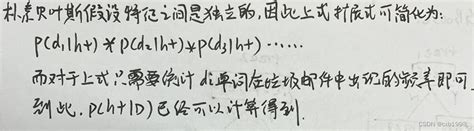 朴素贝叶斯假设特征之间是独立的,因此上式扩展式可简化为:
P(d₁|h+) * P(d₂|h+) * P(d₃|h+) ……
而对于上式只需要统计 di单词在垃圾邮件中出现的频率即可
到此, P(h+|D) 已经可以计算得到.
CSDN @